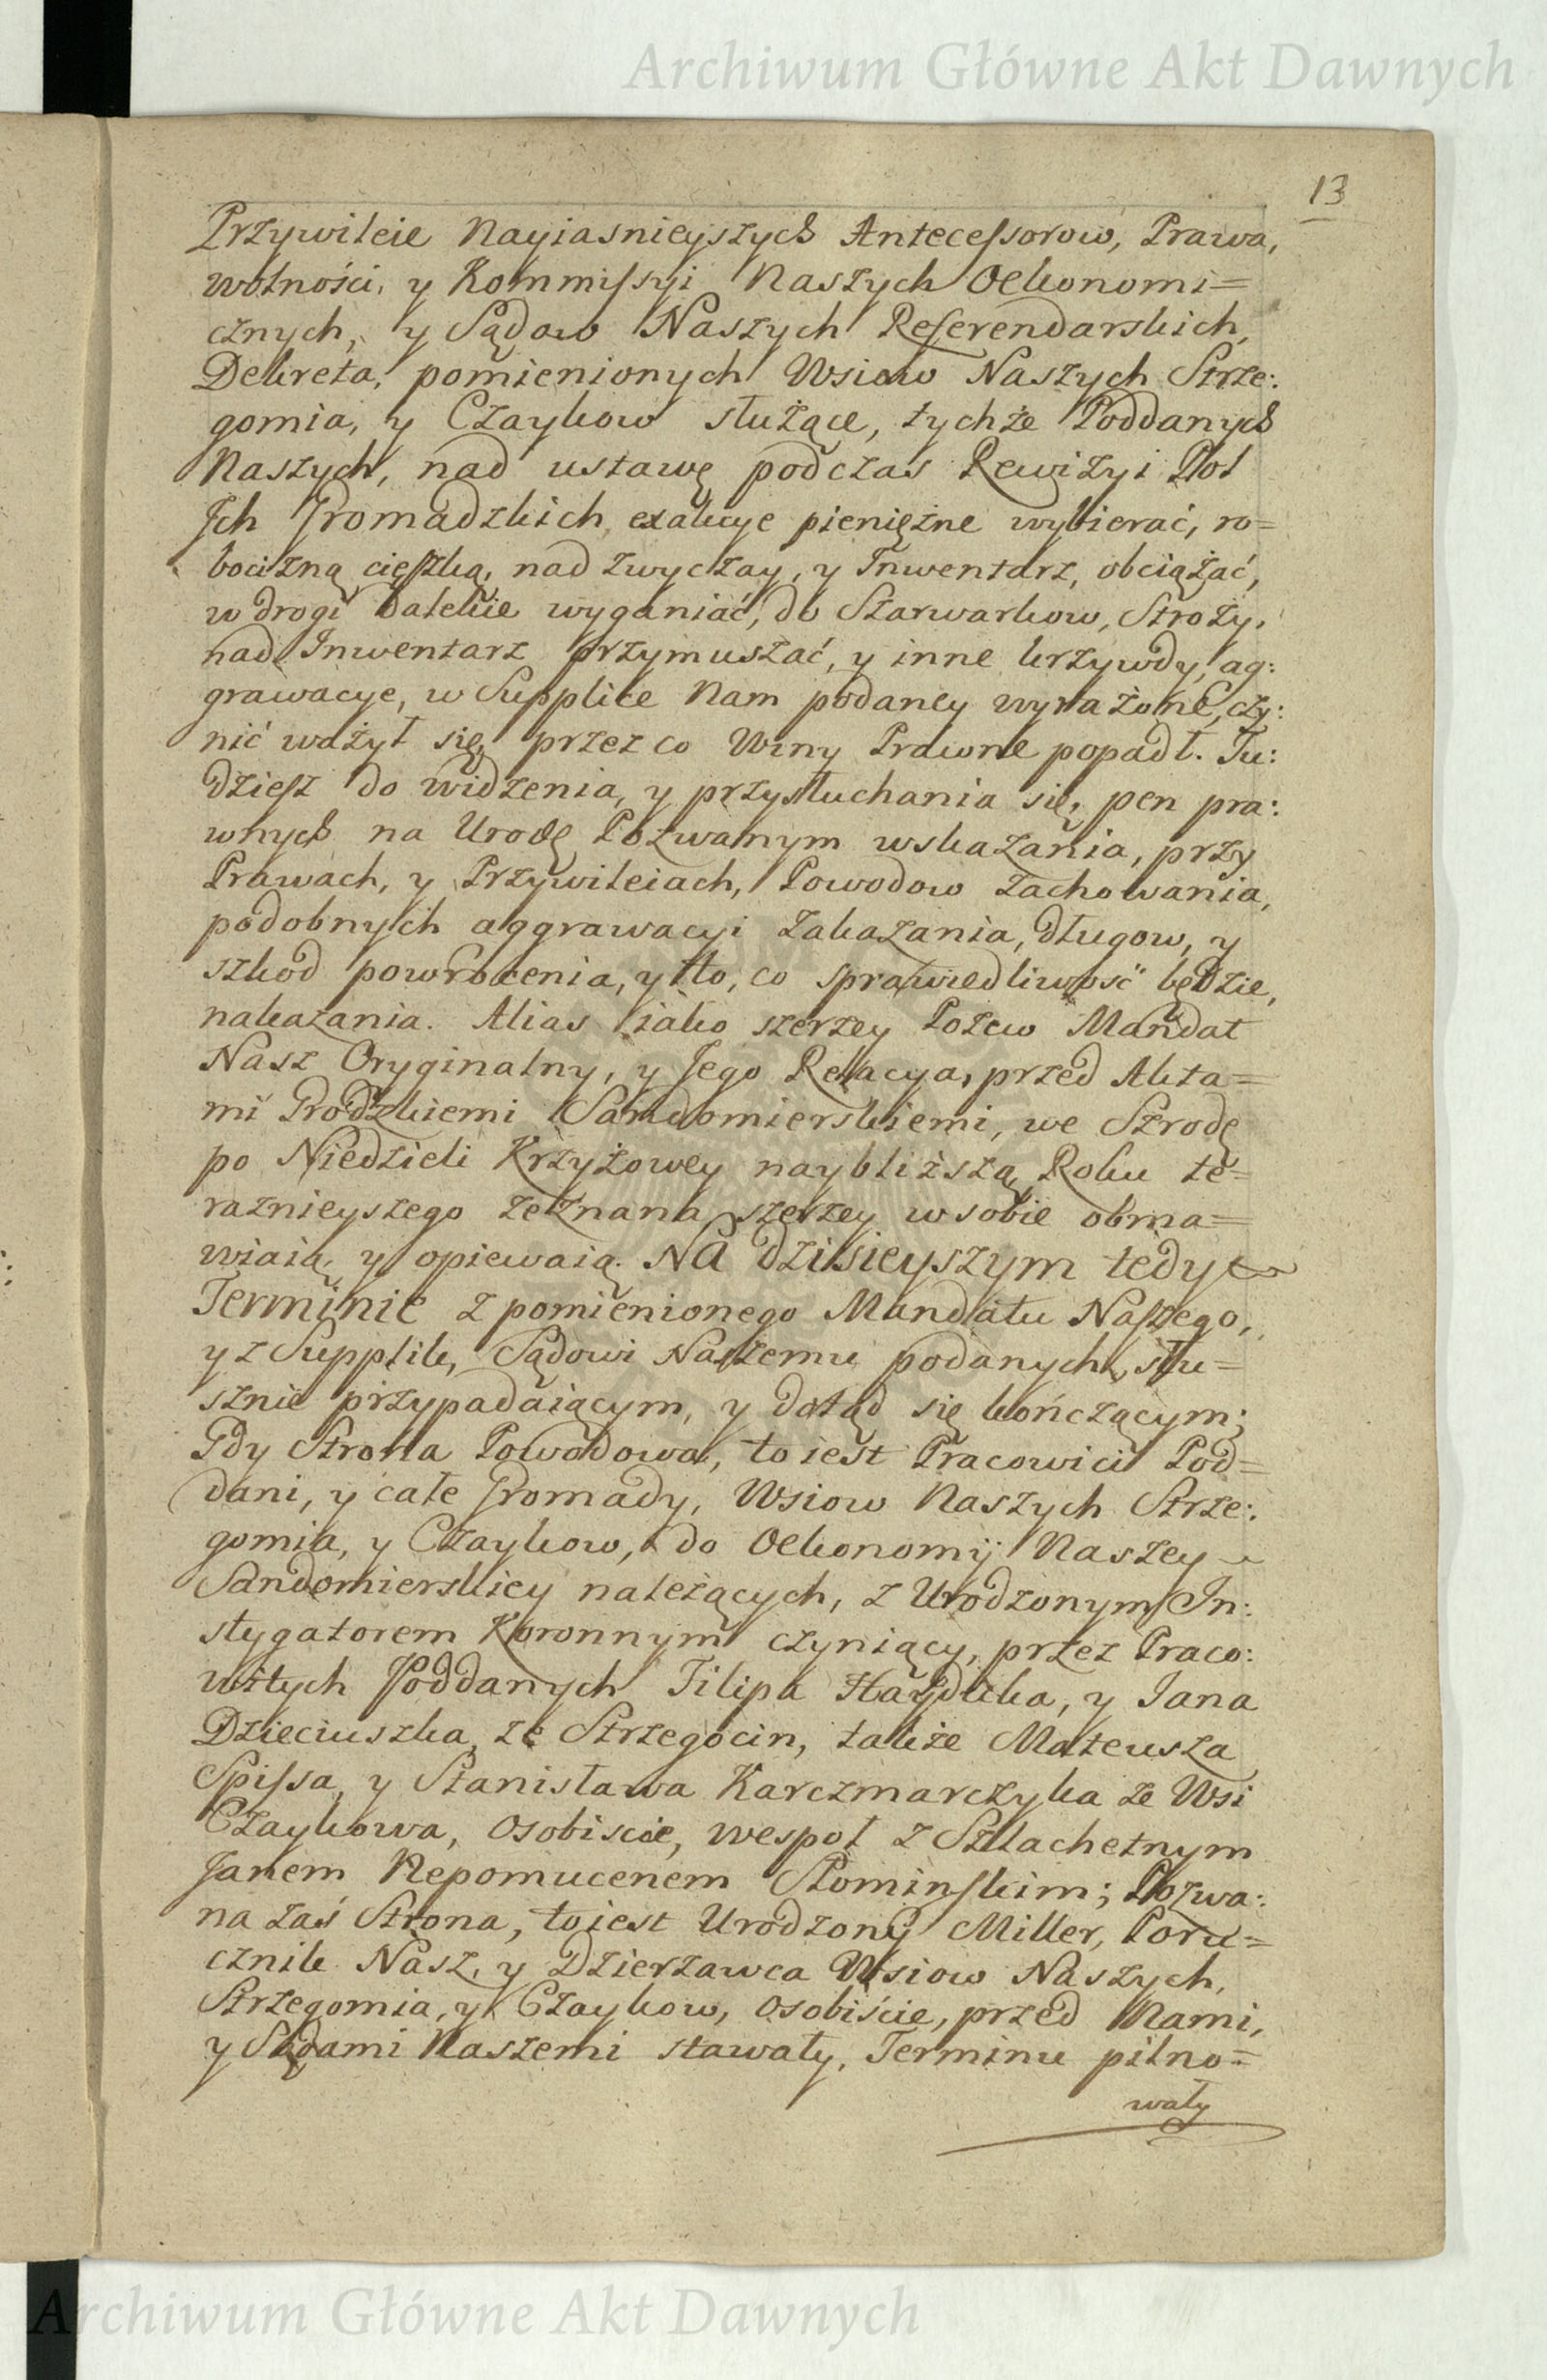 Archiwum Główne Akt Dawnych
13
Przywileie Nayiasnieyszych Antecessorow, Prawa,
wolności, y Kommissyi Naszych Oekonomi=
cznych, y Sądow Naszych Referendarskich,
Dekreta, pomienionych Wsiow Naszych Strze:
gomia, y Czaykow służące, tychże Poddanych
Naszych, nad ustawę podczas Rewizyi Pol
Jch Gromadzkich, exakcye pieniężne wybierać, ro=
bocizną cięszką, nad zwyczay, y Jnwentarz, obciążać,
w drogi dalekie wyganiać, do Szarwarkow, Stroży,
nad Jnwentarz przymuszać, y inne krzywdy, ag:
grawacye, w Supplice Nam podaney wyrażone, czy:
nić ważył się, przez co Winy Prawne popadł. Tu:
dziesz do widzenia, y przysłuchania się, pen pra:
wnych na Urodę Pozwanym wskazania, przy
Prawach, y Przywileiach, Powodow zachowania,
podobnych aggrawacyi zakazania, długow, y
szkod powrocenia, y to, co sprawiedliwość będzie,
nakazania. Alias iako szerzey Pozew Mandat
Nasz Oryginalny, y Jego Relacya, przed Akta=
mi Grodzkiemi Sandomierskiemi, we Szrodę
po Niedzieli Krzyżowey naybliższą, Roku te=
raznieyszego zeznana szerzey w sobie obma=
wiaią, y opiewaią. NA dzisieyszym tedy
Terminie z pomienionego Mandatu Naszego,
y z Supplik, Sądowi Naszemu podanych, słu=
sznie przypadaiącym, y dotąd się kończącym;
Gdy Strona Powodowa, to iest Pracowici Pod=
dani, y całe Gromady, Wsiow Naszych Strze:
gomia, y Czaykow, do Oekonomij Naszey
Sandomierskiey należących, z Urodzonym Jn:
stygatorem Koronnym czyniący, przez Praco:
witych Poddanych Filipa Hayduka, y Jana
Dzieciuszka, ze Strzegocin, także Mateusza
Spissa, y Stanisława Karczmarczyka ze Wsi
Czaykowa, Osobiscie, wespoł z Szlachetnym
Janem Nepomucenem Słominskim; Pozwa:
na zaś Strona, to iest Urodzony Miller, Poru=
cznik Nasz, y Dzierzawca Wsiow Naszych,
Strzegomia, y Czaykow, Osobiście, przed Nami,
y Sądami Naszemi stawały, Terminu pilno=
wały
Archiwum Główne Akt Dawnych